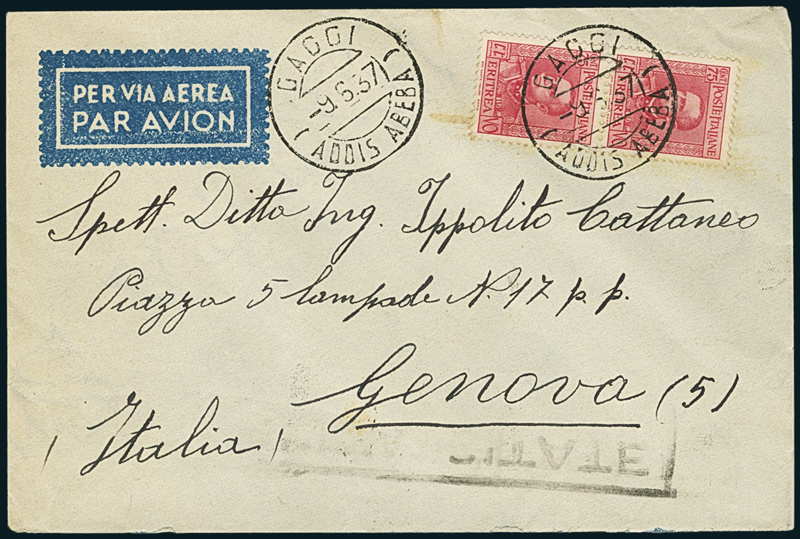 PER VIA AEREA
PAR AVION
GAGGI
-9.6.37
(ADDIS ABEBA)
GAGGI
ADDIS ABEBA
POSTE ITALIANE
75
ERITREA
Spett. Ditta Ing. Ippolito Cattaneo
Piazza 5 lampade N. 17 p. p.
Genova (5)
Italia